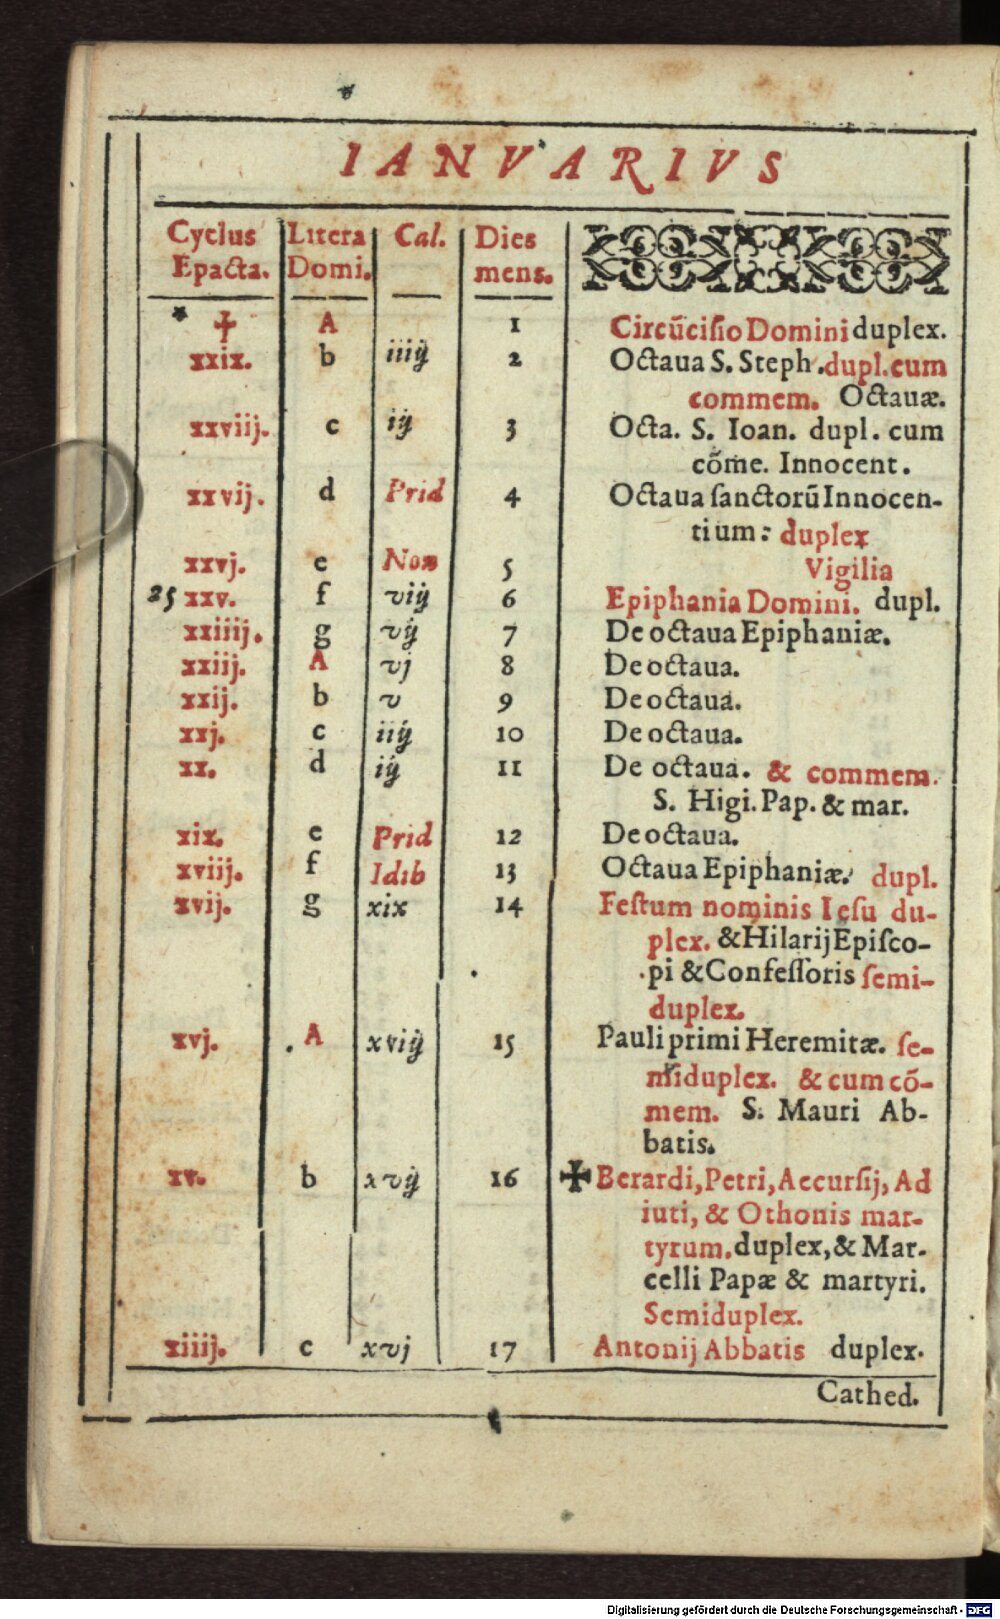 IANVARIVS
Cyclus Litera Cal. Dies
Epacta. Domi. mens.
* ✝ A 1 Circũcisio Domini duplex.
xxix. b iiij 2 Octaua S. Steph. dupl. cum
commem. Octauæ.
xxviij. c iij 3 Octa. S. Ioan. dupl. cum
cõme. Innocent.
xxvij. d Prid 4 Octaua sanctorũ Innocen-
tium: duplex
xxvj. e Non 5 Vigilia
25 xxv. f viij 6 Epiphania Domini. dupl.
xxiiij. g vij 7 De octaua Epiphaniæ.
xxiij. A vj 8 De octaua.
xxij. b v 9 De octaua.
xxj. c iiij 10 De octaua.
xx. d iij 11 De octaua. & commem.
S. Higi. Pap. & mar.
xix. e Prid 12 De octaua.
xviij. f Idib 13 Octaua Epiphaniæ. dupl.
xvij. g xix 14 Festum nominis Iesu du-
plex. & Hilarij Episco-
pi & Confessoris semi-
duplex.
xvj. A xviij 15 Pauli primi Heremitæ. se-
miduplex. & cum cõ-
mem. S. Mauri Ab-
batis.
xv. b xvij 16 ✠ Berardi, Petri, Accursij, Ad
iuti, & Othonis mar-
tyrum. duplex, & Mar-
celli Papæ & martyri.
Semiduplex.
xiiij. c xvj 17 Antonij Abbatis duplex.
Cathed.
Digitalisierung gefördert durch die Deutsche Forschungsgemeinschaft - DFG